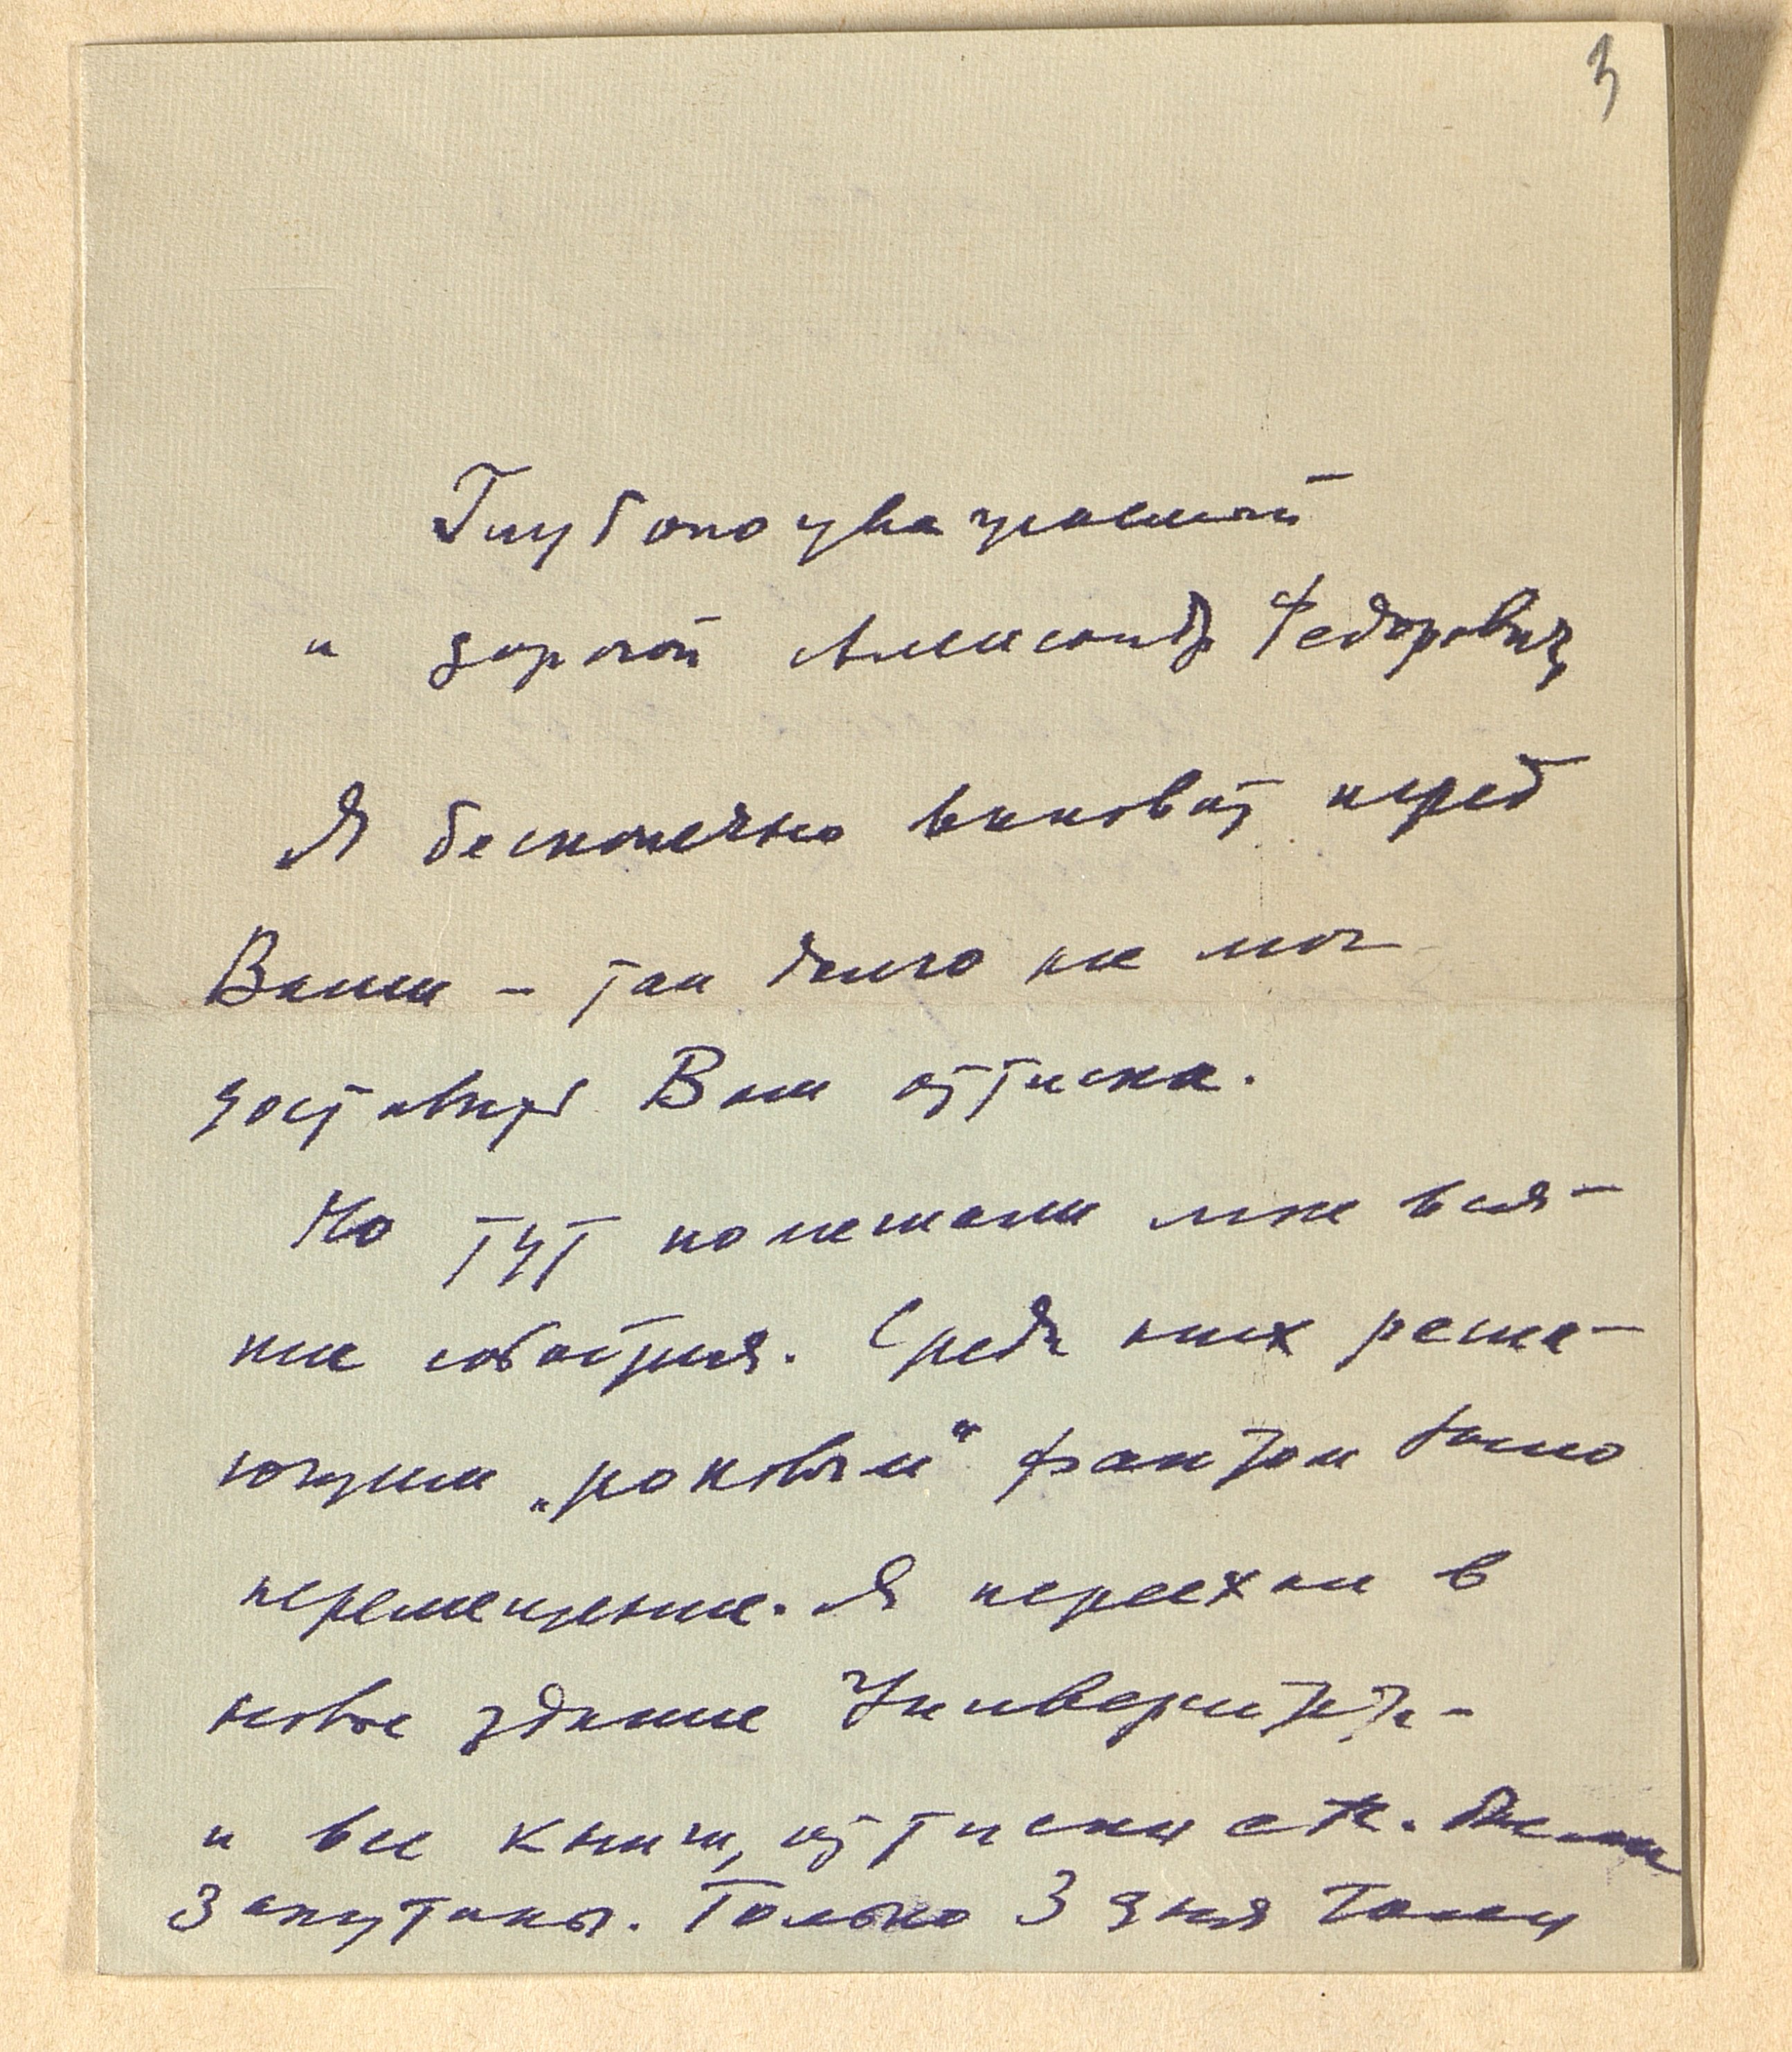 3
Глубокоуважаемый
и дорогой Александр Федорович,
Я бесконечно виноват перед
Вами – так долго не мог
доставить Вам оттиска.
Но тут помешали мне вся-
кие события. Среди них реша-
ющим „роковым“ фактом было
перемещение. Я переехал в
новое здание Университета –
и все книги, оттиски были
запутаны. Только 3 дня тому